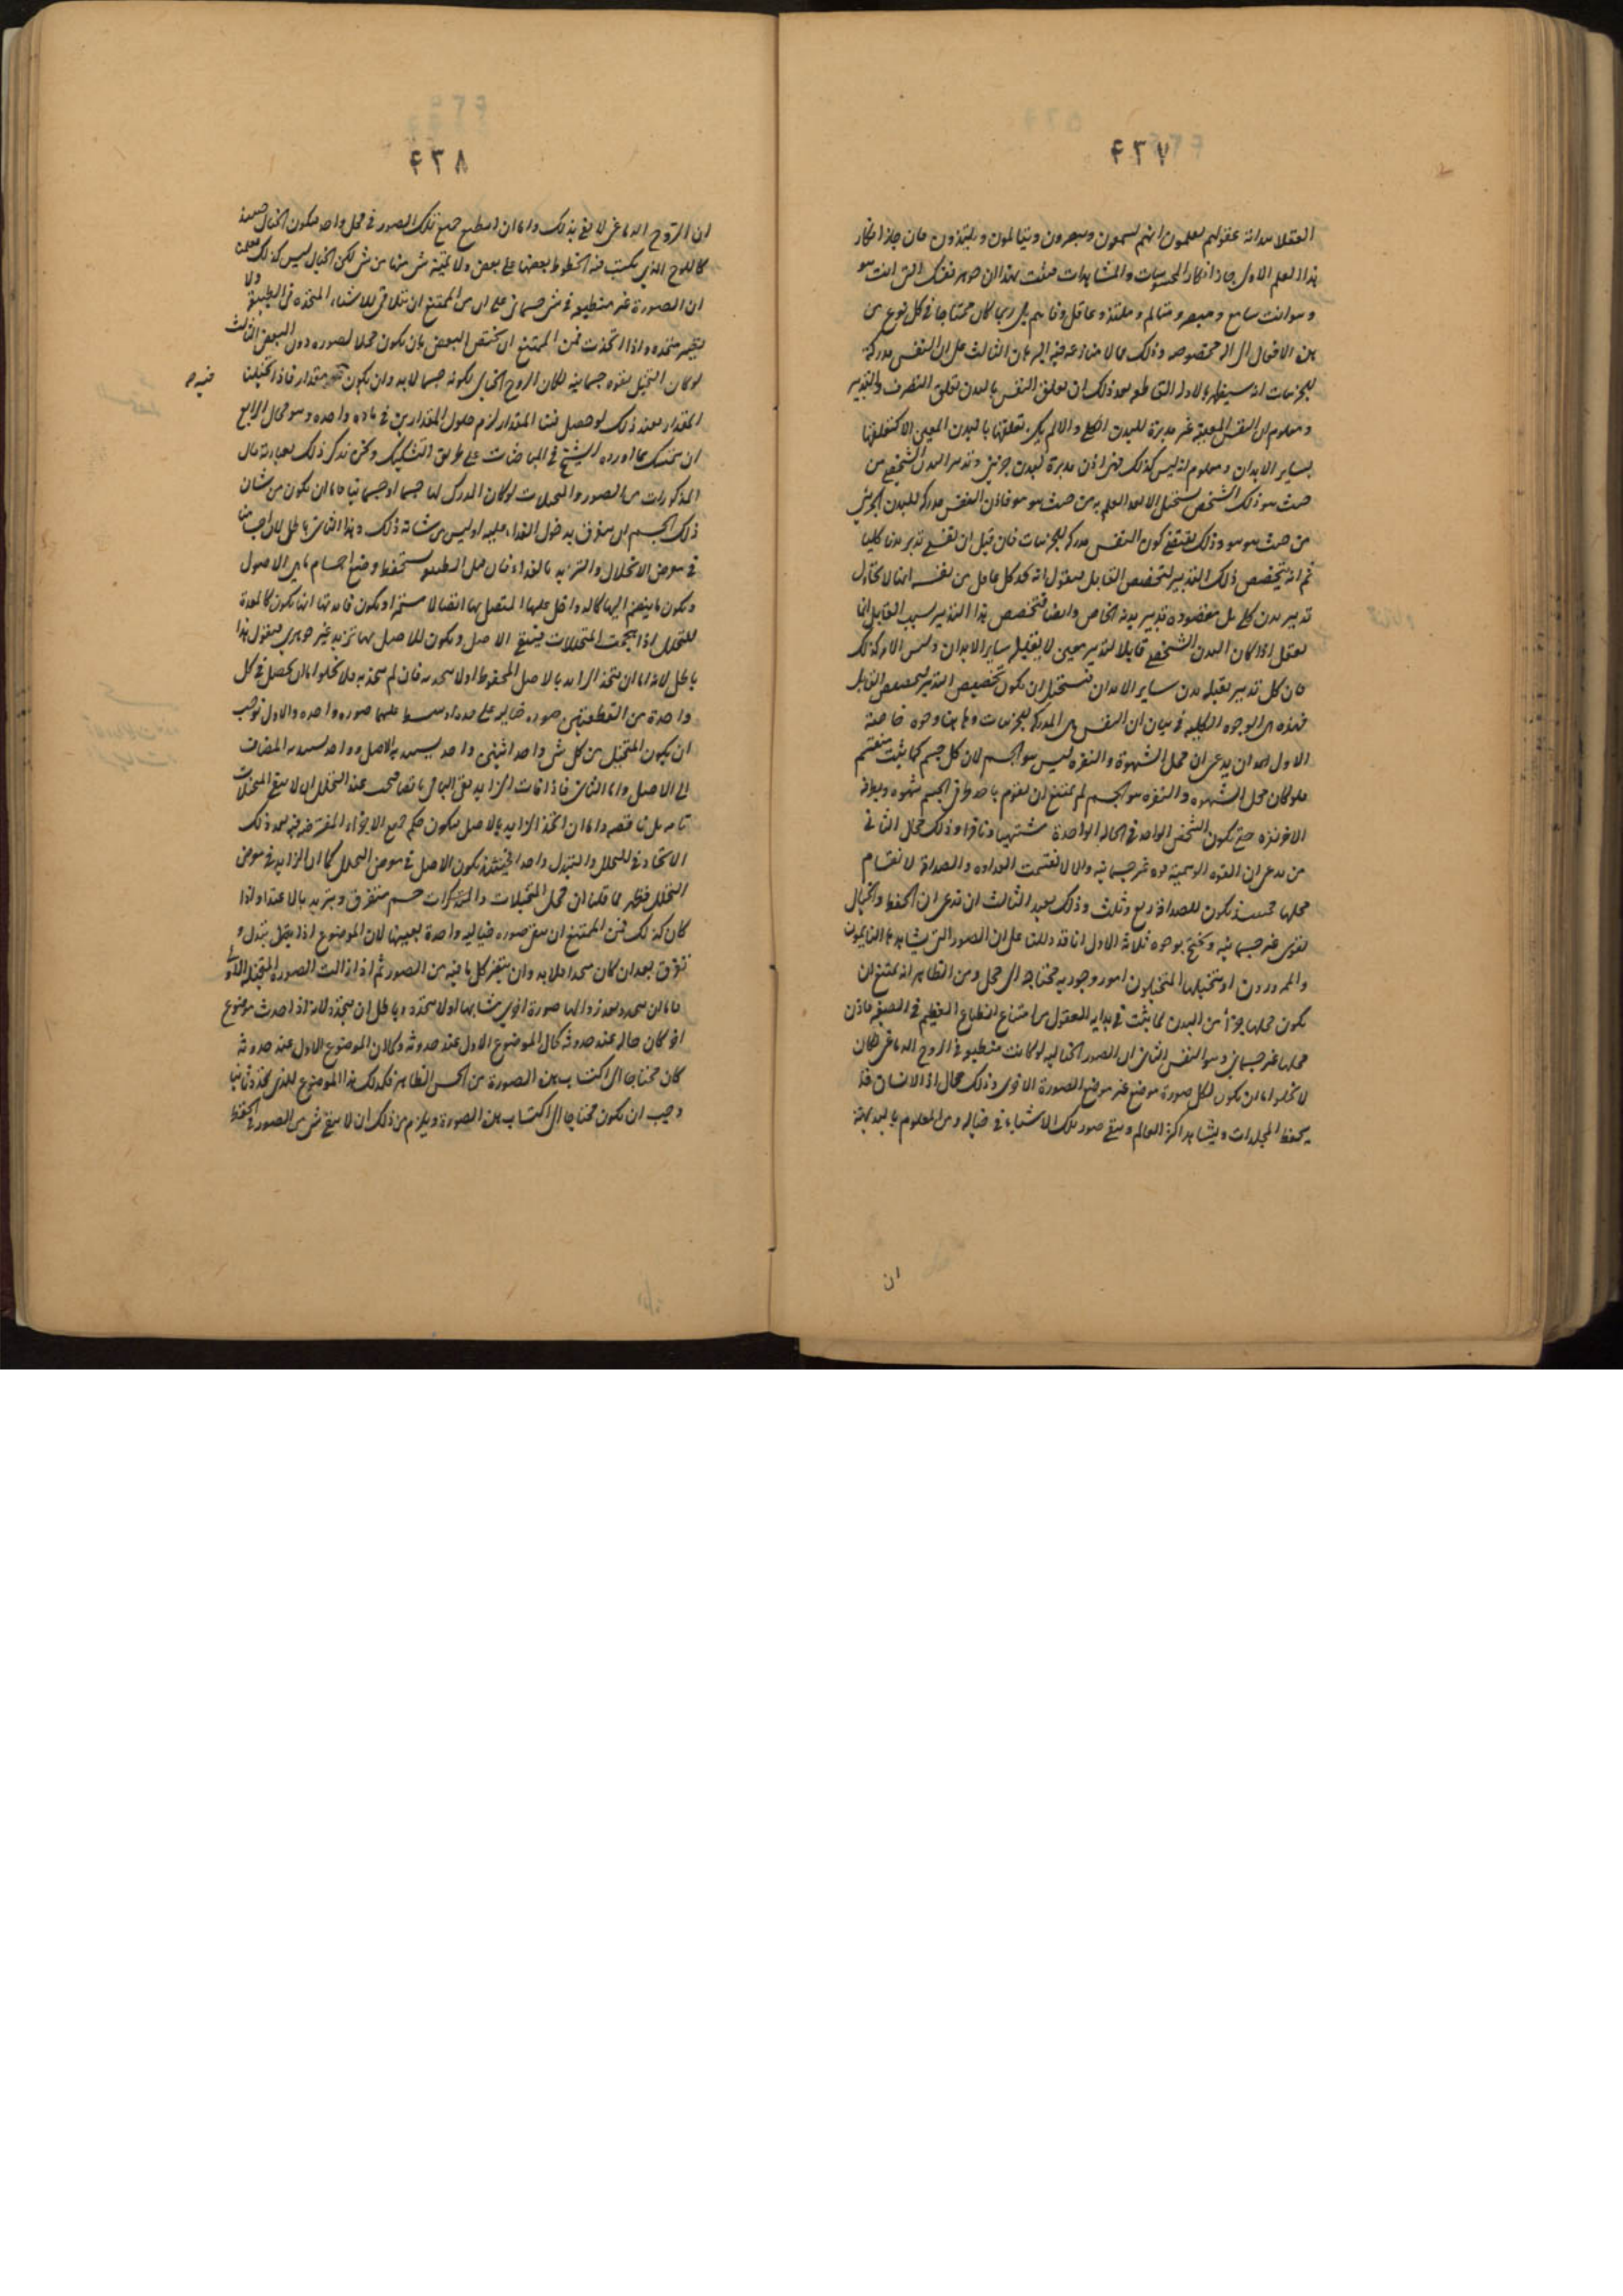 ٤٣٧
العقلا ببدائه عقولهم يعلمون انهم يسمعون ويبصرون ويتالمون ويلتذون فان جاز انكار
هذا العلم الاولى جاز انكار المحسوسات والمشاهدات فثبت بهذا ان جوهر نفسك التى انت هو
وهو انت سامع ومبصر ومتالم وملتذ وعاقل وفاهم بلى ربما كان محتاجا فى كل نوع من
هذه الافعال الى الة مخصوصه وذلك مما لا منازعه فيه البرهان الثالث على ان النفس مدركة
للجزئيات انه سيظهر بالادله القاطعه بعد ذلك ان تعلق النفس بالبدن تعلق التصرف والتدبير
ومعلوم ان النفس المعينة غير مدبرة للبدن الكلى والا لم يكن تعلقها بالبدن المعين الا كتعلقها
بساير الابدان ومعلوم انه ليس كذلك فهى اذن مدبرة لبدن جزئى وتدبير البدن الشخصى من
حيث هو ذلك الشخص يستحيل الا بعد العلم به من حيث هو هو فاذن النفس مدركه للبدن الجزئى
من حيث هو هو وذلك يقتضى كون النفس مدركه للجزئيات فان قيل ان نفسى تدبر بدنا كليا
ثم انه يتخصص ذلك التدبير لتخصص القابل فنقول انه يجد كل عاقل من نفسه انه لا يحاول
تدبير بدن كلى بل مقصوده تدبير بدنه الخاص وايضا فتخصص هذا التدبير بسبب القابل انما
يعقل اذا كان البدن الشخصى قابلا لتدبير معين لا يقبله ساير الابدان وليس الامر كذلك
فان كل تدبير يقبله بدن ساير الابدان فيستحيل ان يكون تخصيص التدبير لتخصص القابل
فهذه هى الوجوه الكليه فى بيان ان النفس هى المدركه للجزئيات وهاهنا وجوه خاصة
الاول لاحد ان يدعى ان محل الشهوة والنفره ليس هو الجسم لان كل جسم كما يثبت منقسم
فلو كان محل الشهوه والنفره هو الجسم لم يمتنع ان يقوم باحد طرفى الجسم شهوه وبطرفه
الاخر نفره حتى يكون الشخص الواحد فى الحاله الواحدة مشتهيا ونافرا وذلك محال الثانى
من يدعى ان القوه الوهمية قوه غير جسمانيه والا لانقسمت العداوه والصداقة لانقسام
محلها فحينئذ يكون للصداقة ربع وثلث وذلك بعيد الثالث ان تدعى ان الحفظ والخيال
لقوى غير جسمانيه ونحتج بوجوه ثلاثه الاول انا قد دللنا على ان الصور التى يشاهدها النايمون
والممرورون او يتخيلها المتخيلون امور وجوديه محتاجه الى محل ومن الظاهر انه يمتنع ان
يكون محلها جزءا من البدن لما يثبت فى بدايه العقول من امتناع انطباع العظيم فى الصغير فاذن
محلها غير جسمانى وهو النفس الثانى ان الصور الخياليه لو كانت منطبعه فى الروح الدماغى لكان
لا يخلو اما ان يكون لكل صورة موضع غير موضع الصورة الاخرى وذلك محال اذ الانسان قد
يحفظ المجلدات ويشاهد اكثر العالم وتبقى صور تلك الاشياء فى خياله ومن المعلوم بالبديهة
ان
٤٣٨
ان الروح الدماغى لا يفى بذلك واما ان ينطبع جميع تلك الصور فى محل واحد فيكون الخيال حينئذ
كاللوح الذى يكتب فيه الخطوط بعضها على بعض ولا يتميز شئ منها من شئ لكن الخيال ليس كذلك فعلمنا
ان الصورة غير منطبعه فى شئ جسمانى على ان من الممتنع ان تتلاقى الاشياء المتحده فى الطبيعة ولا
تصير متحده واذا اتحدت فمن الممتنع ان يختص البعض بان يكون محلا لصوره دون البعض الثالث
لو كان التخيل بقوه جسمانية لكان الروح الخيالى لكونه جسما لابد وان يكون فيه مقدار فاذا تخيلنا
المقدار فعند ذلك لو حصل فينا المقدار لزم حلول المقدارين فى ماده واحده وهو محال الرابع
ان نتمسك بما اورده الشيخ فى المباحثات على طريق التشكيك ونحن نذكر ذلك بعبارته قال
المذكورات من الصور والمتخيلات لو كان المدرك لها جسما او جسمانيا فاما ان يكون من شان
ذلك الجسم ان يتفرق بدخول الغذاء عليه او ليس من شانه ذلك وهذا الثانى باطل لان اجسامنا
فى معرض الانحلال والتزايد بالغذاء فان قيل الطبيعه تستحفظ وضع اجسام ما هى الاصول
ويكون ما ينضم اليها كالدواخل عليها المتصل بها اتصالا مستمرا ويكون فايدتها انها يكون كالمعدة
للتحلل اذا هجمت المحللات فيبقى الاصل ويكون للاصل بها تزيد غير جوهرى فنقول هذا
باطل لانه اما ان يتحد الزايد بالاصل المحفوظ اولا يتحد به فان لم يتحد به فلا يخلوا اما ان يحصل فى كل
واحدة من القطعتين صوره خياليه على حده او ينبسط عليهما صوره واحده والاول يوجب
ان يكون المتخيل من كل شئ واحد اثنين واحد يستبد به الاصل وواحد يستبد به المضاف
الى الاصل واما الثانى فاذا غاب الزايد بقى الباقى ناقصا فيجب عند التحلل ان لا تبقى المتخيلات
تامه بل ناقصه واما ان اتحد الزايد بالاصل فيكون حكم جميع الاجزاء المفترضه فيه بعد ذلك
الاتحاد فى التحلل والتبدل واحدا فحينئذ يكون الاصل فى معرض التحلل كما ان الزايد فى معرض
التحلل فظهر مما قلنا ان محل المتخيلات والمتذكرات جسم متفرق ويتزيد بالاغتذاء واذا
كان كذلك فمن الممتنع ان تبقى صوره خياليه واحدة بعينها لان الموضوع اذا تبدل وتفرق
بعد ان كان متحدا فلابد وان يتغير كل ما فيه من الصور ثم اذا زالت الصورة المتخيلة الاولى
فاما ان يتجدد بعد زوالها صورة اخرى تشابهها اولا يتجدد وباطل ان يتجدد لانه اذا حدث موضوع
اخر كان حاله عند حدوثه كحال الموضوع الاول عند حدوثه وكما ان الموضوع الاول عند حدوثه
كان محتاجا الى اكتساب هذه الصورة من الحس الظاهر فكذلك هذا الموضوع الذى تجدد ثانيا
وجب ان يكون محتاجا الى اكتساب هذه الصورة ويلزم من ذلك ان لا يبقى شئ من الصور فى الحفظ